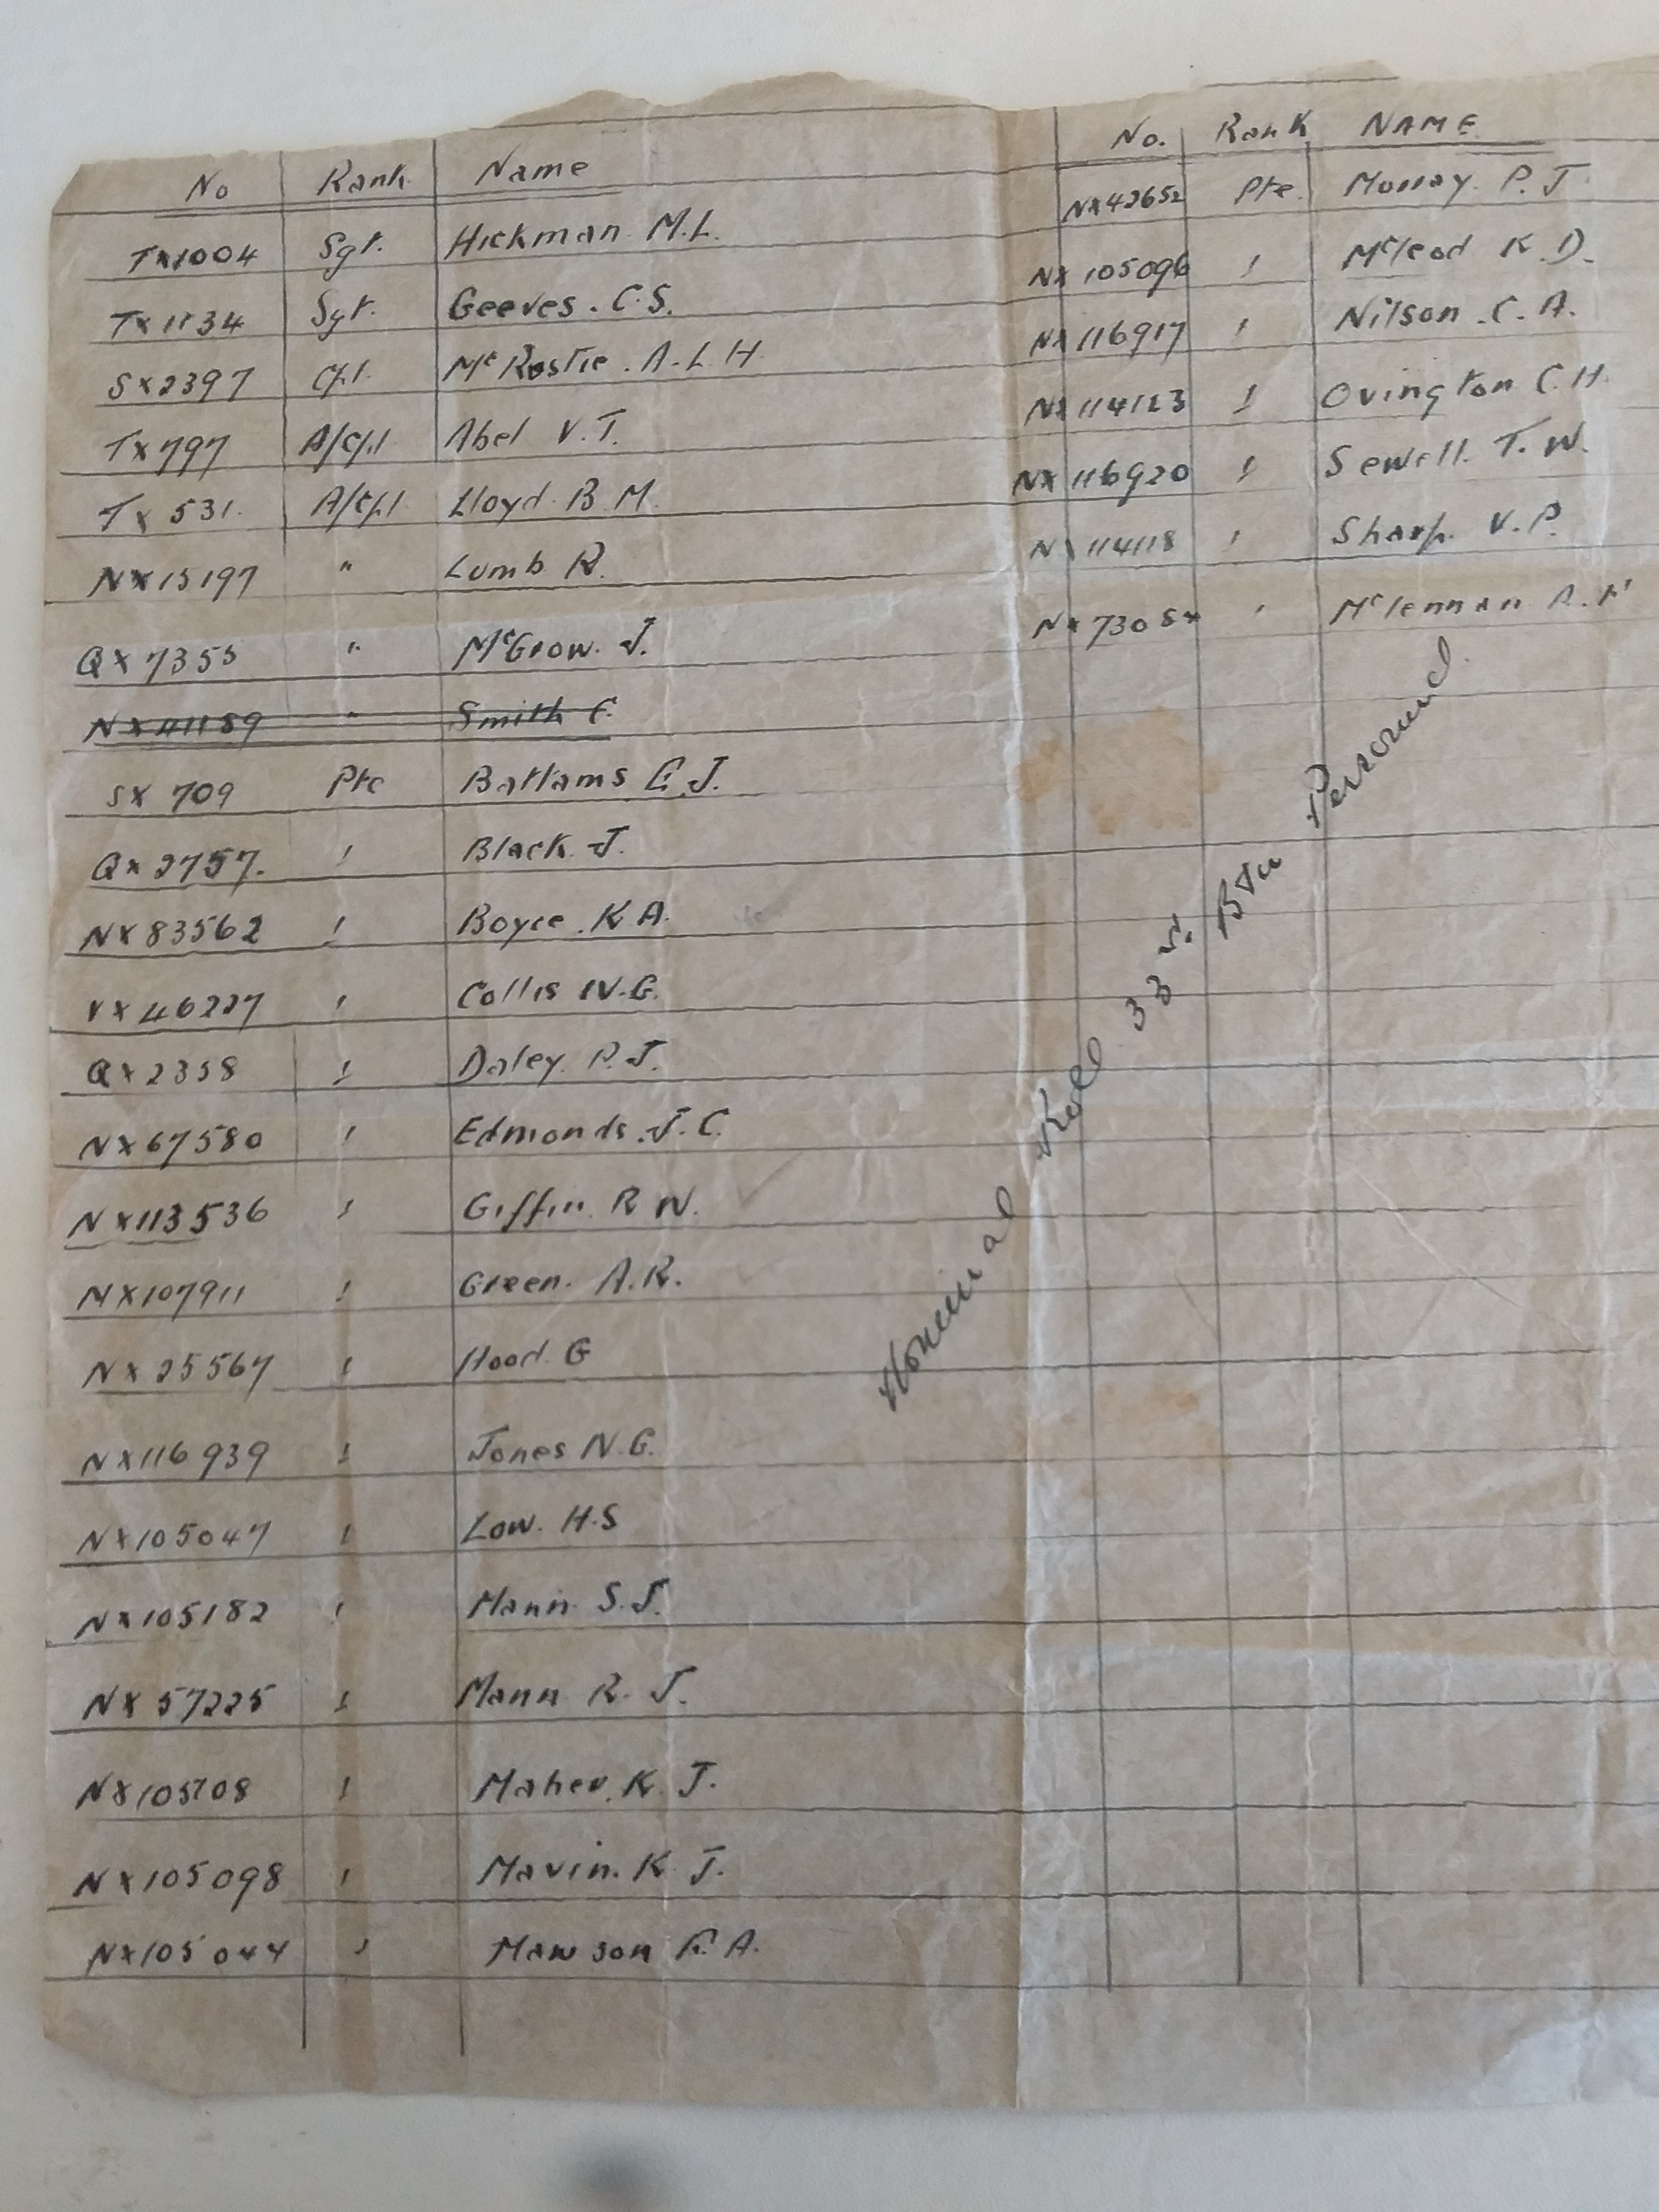 No Rank Name
TX1004 Sgt. Hickman M.L.
TX1134 Sgt. Geeves. C.S.
SX2397 Cpl. McRostie. A.L.H
TX797 A/Cpl Abel V.T.
TX 531. A/Cpl Lloyd B.M.
NX15197 " Lumb R.
QX7355 " McGrow. J.
NX41189 " Smith E.
SX 709 Pte Battams E.J.
QX2757. " Black. J.
NX83562 " Boyce. K.A.
VX46227 " Collis W.G.
QX2358 " Daley. P.J.
NX67580 " Edmonds. J.C.
NX113536 " Giffin. R W.
NX107911 " Green. A.R.
NX25567 " Hood. G
NX116939 " Jones N.G.
NX105047 " Low. H.S
NX105182 " Mann. S.J.
NX 57225 " Mann R. J.
NX105108 " Maher. K. J.
NX105098 " Mavin. K J.
NX105044 " Mawson A.
No. Rank NAME
NX42652 Pte. Murray. P.J
NX105096 " Mcleod K.D.
NX116917 " Nilson. C.A.
NX114123 " Ovington C.H.
NX116920 " Sewell. T.W.
NX114118 " Sharp. V.P.
" Mclennan A.
Nominal Roll 33rd. Btn Personnel.